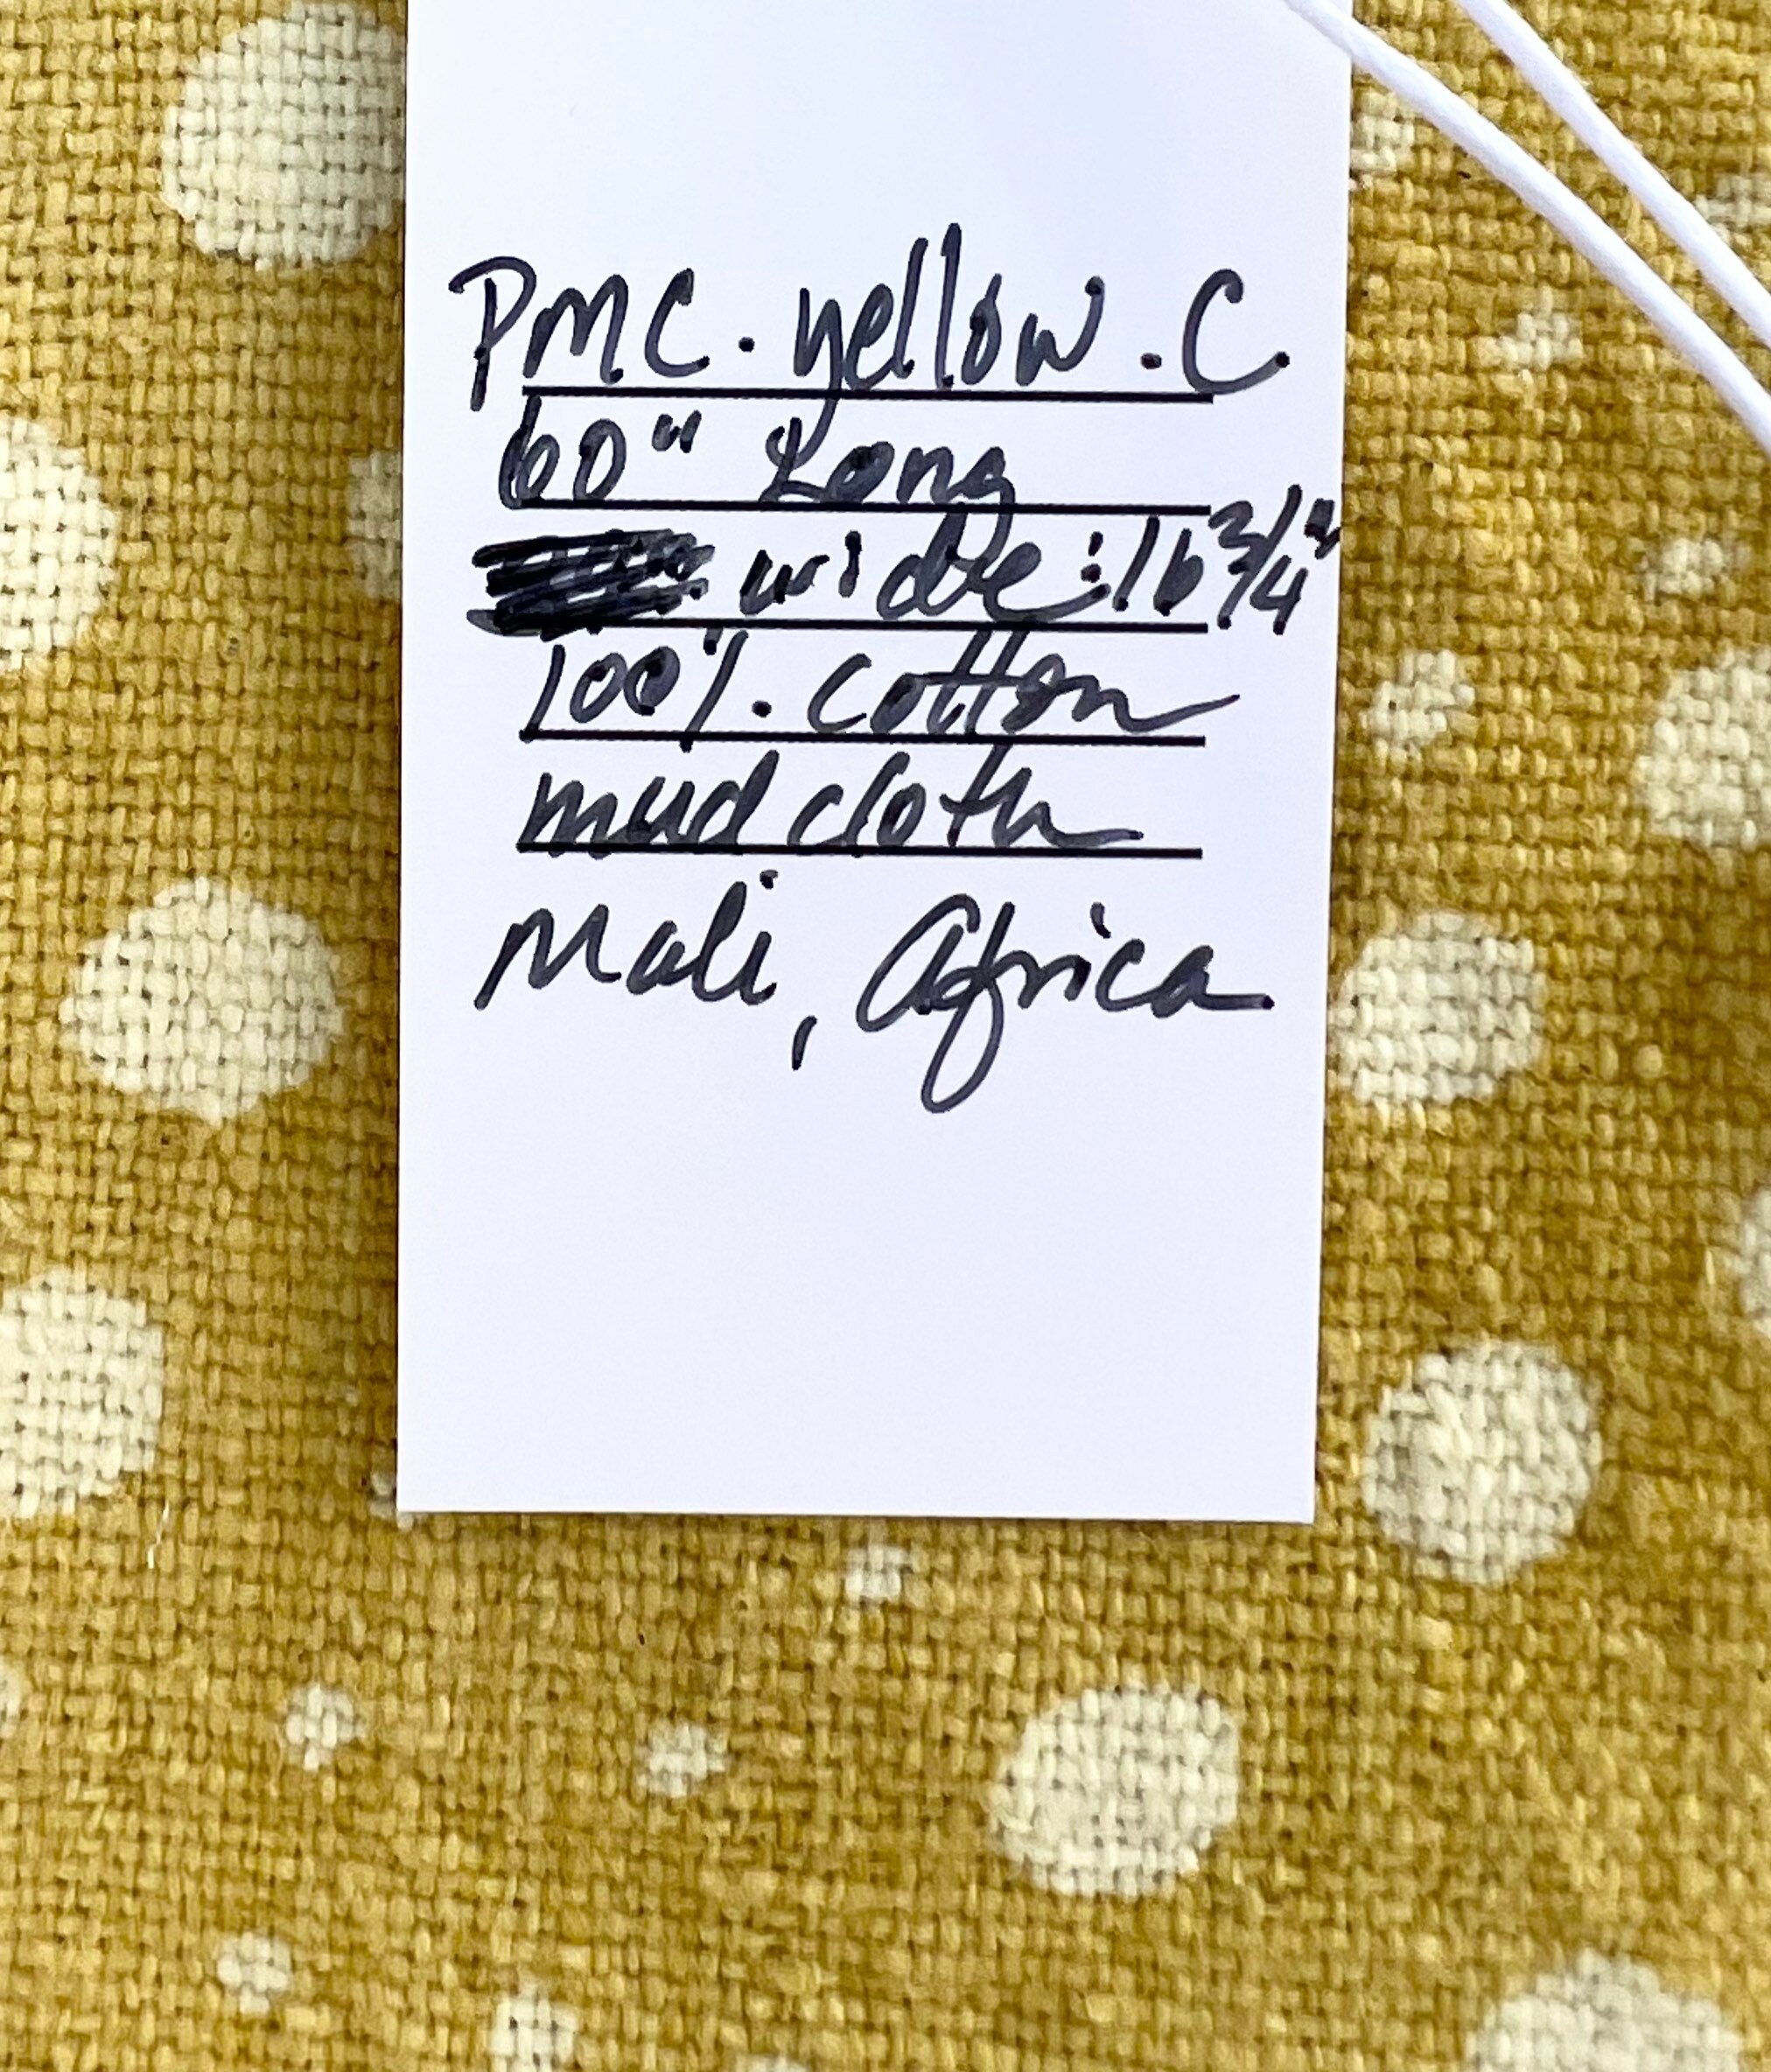 PMC. yellow. C.
60" Long
wide: 16 3/4"
100%. cotton
mud cloth
Mali, Africa